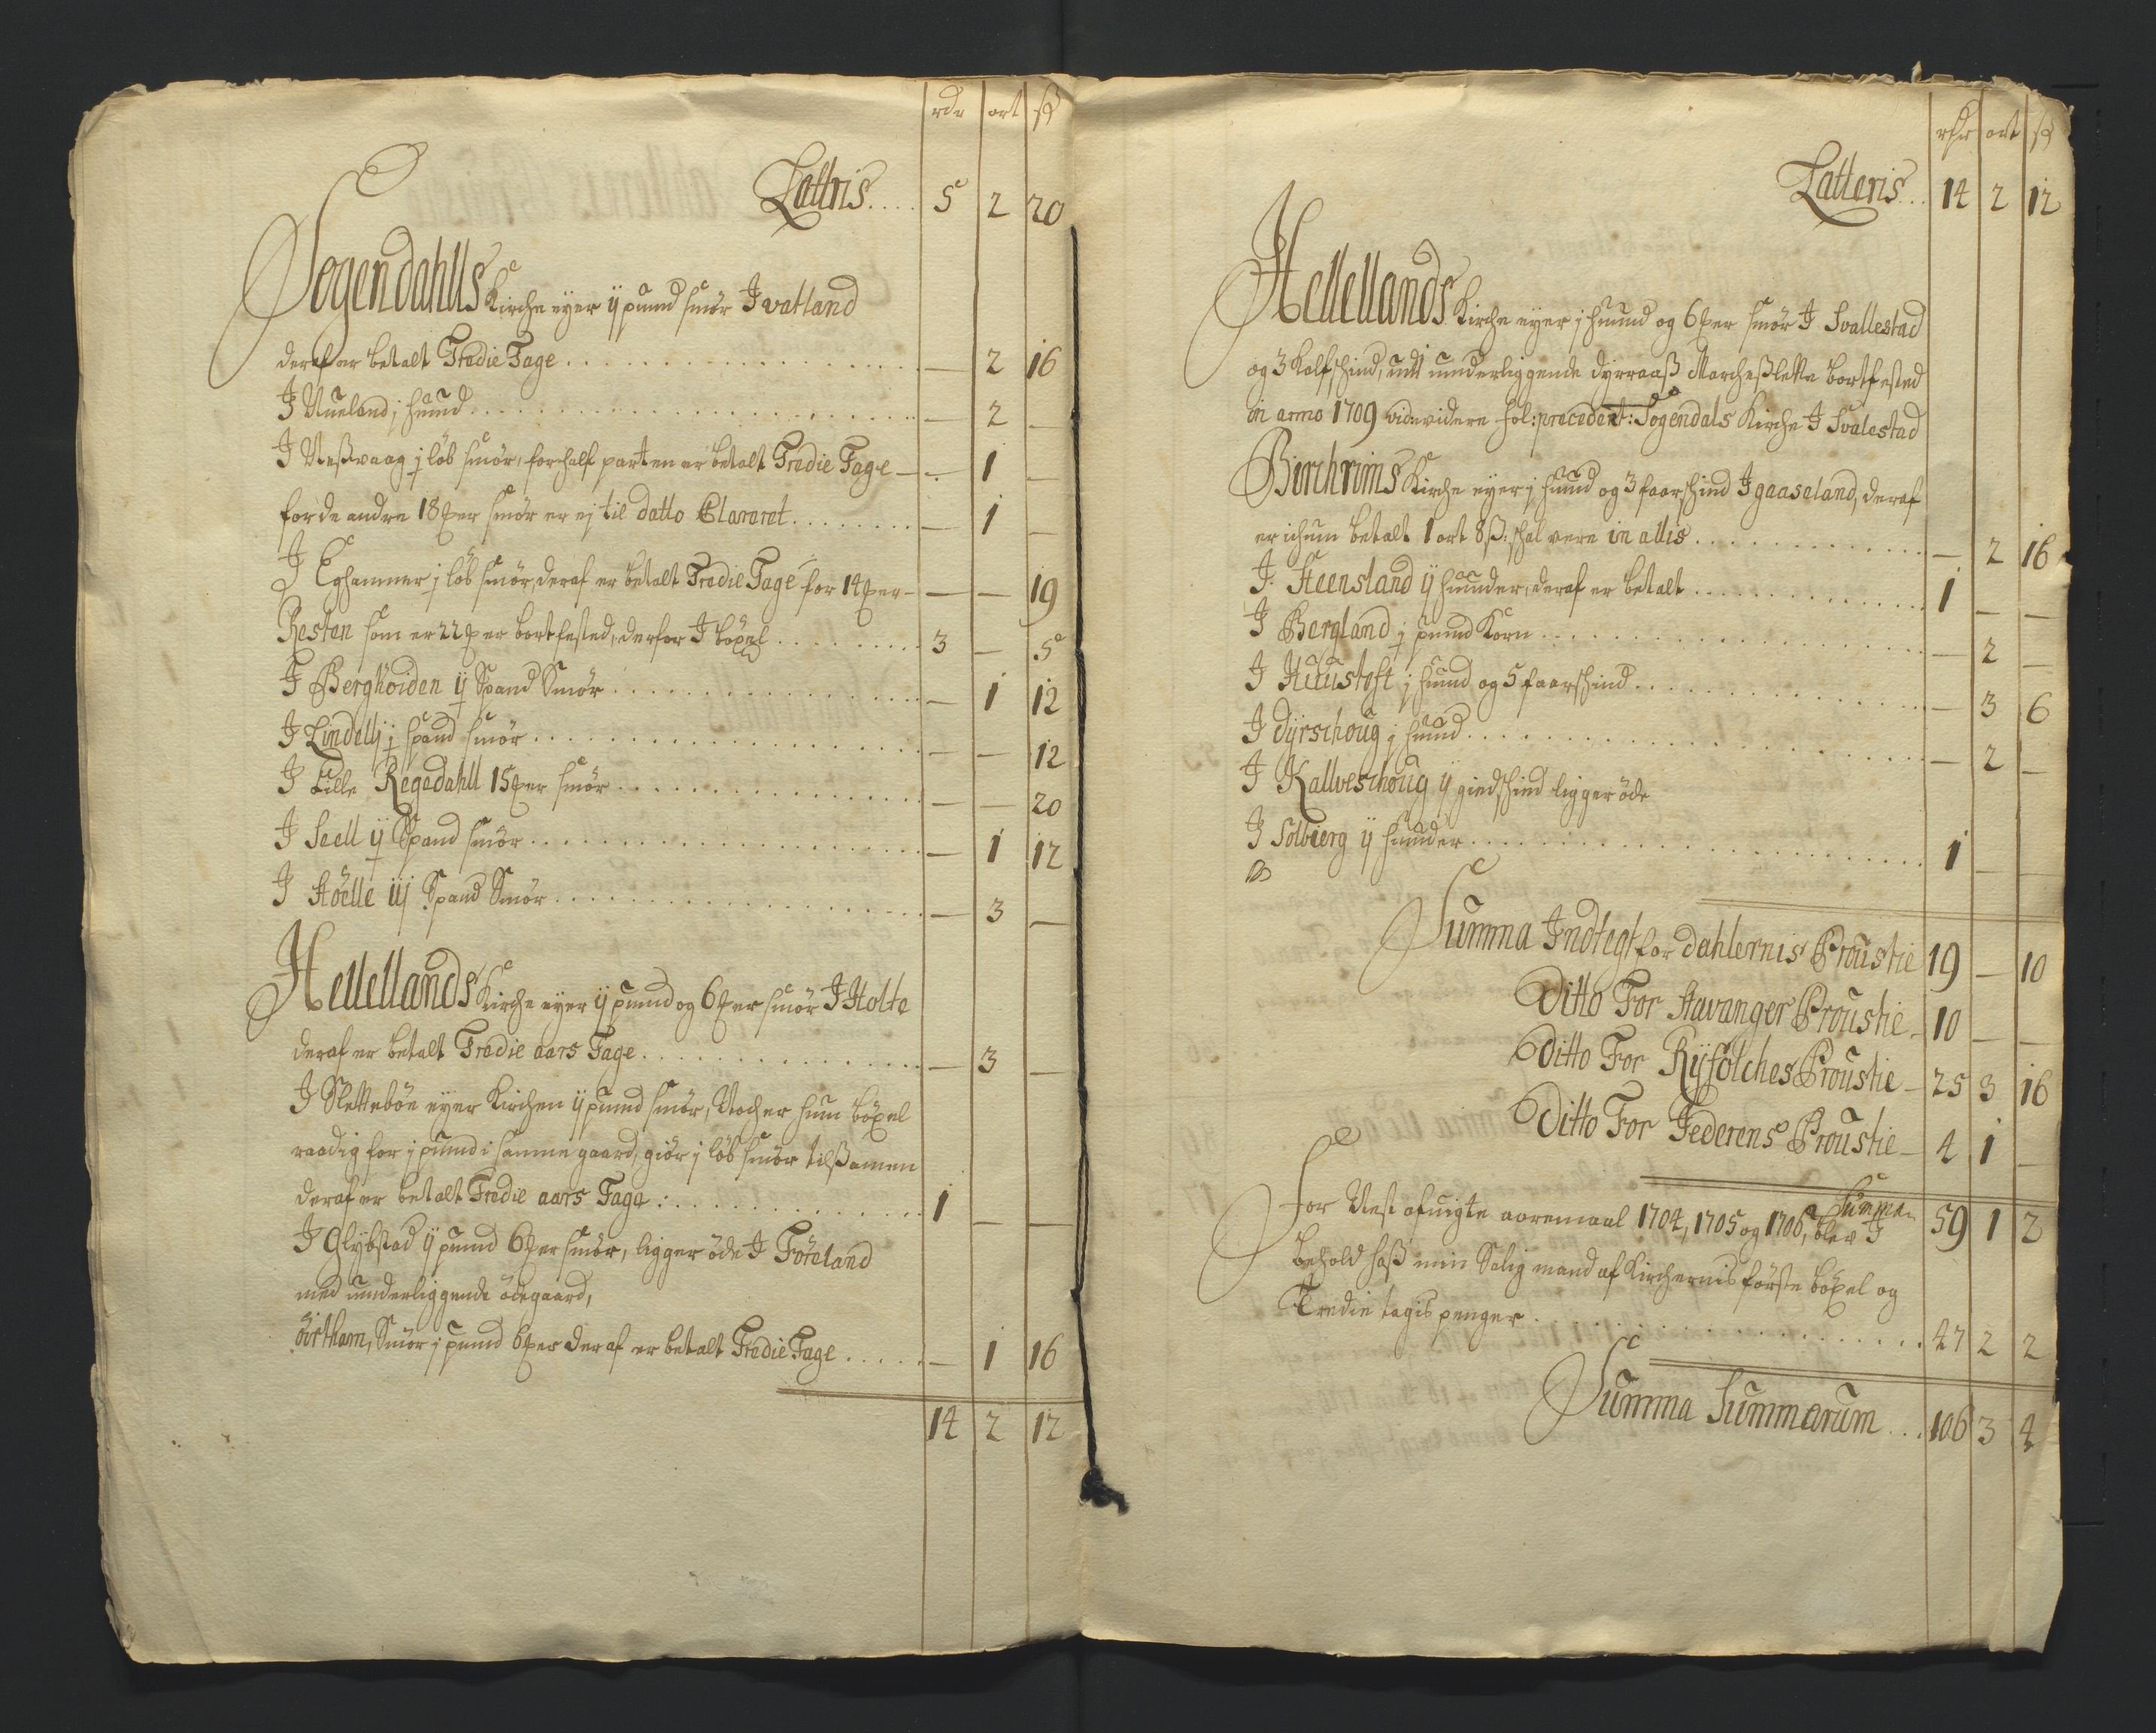 rdr ort ß
Lattris.... 5 2 20
Sogendahlls Kirche eyer ij pund smör I vatland
deraf er betalt Tredie Tage . . . . — 2 16
I Nueland j huud . . . . — 2 —
I Neßvaag j löb smör, for half parten er betalt Tredie Tage — — 1 —
for de andre 18 per smör er ej til datto Clareret . . . . — 1 —
I Eghammer j löb smör, deraf er betalt Tredie Tage for 14 per — — — 19
Resten som er 22 per bortfested, derfor I böxel . . . . 3 — 5
I Berghöiden ij Spand Smör . . . . — 1 12
I Lindellj j spand smör . . . . — — 12
I Lille Regedahll 15 per smör . . . . — — 20
I Seell ij Spand smör . . . . — 1 12
I Stöelle iij Spand Smör . . . . — 3 —
Hellellands Kirche eyer ij pund og 6 per smör I Holte
deraf er betalt Tredie aars Tage . . . . — 3 —
I Sletteböe eyer Kirchen ij pund smör, Noch er hun böxel
raadig for j pund i samme gaard, giör j löb smör tilßamen
deraf er betalt Tredie aars Tage : . . . . 1 — —
I Glybstad ij pund 6 per smör, ligger öde I Töreland
med underliggende ödegaard,
Örtham, Smör j pund 6 per deraf er betalt Tredie Tage . . . . — 1 16
14 2 12
rdr ort ß
Latteris . . 14 2 12
Hellellands Kirche eyer j huud og 6 per smör I Svallestad
og 3 Kalfschind, udi underliggende dyrraaß Marcheßlette bortfested
in anno 1709 vide videre fol: precedent: Sogendals Kirche I Svalestad
Birchrims Kirche eyer j huud og 3 faarschind I gaaseland, deraf
er ichun betalt 1 ort 8 ß: schal vere in alles . . . . — 2 16
I Steensland ij huuder, deraf er betalt . . . . 1 — —
I Bergland j pund Korn . . . . — 2 —
I Huustoft j huud og 5 faarschind . . . . — 3 6
I Dyrschoug j huud . . . . — 2 —
I Kallveschoug ij giedschind ligger öde
I Solbierg ij huuder . . . . 1 — —
Summa Indtegt for dahlernis Proustie 19 — 10
Ditto For Stavanger Proustie — 10 — —
Ditto For Ryfolches Proustie — 25 3 16
Ditto For Jederens Proustie — 4 1 —
Summa 59 1 2
For Nest afvigte aaremaal 1704, 1705 og 1706, blev I
behold haß min Salig mand af Kirchernis förste böxel og
Tredie tagis penger . . . . 47 2 2
Summa Summarum . . . 106 3 4